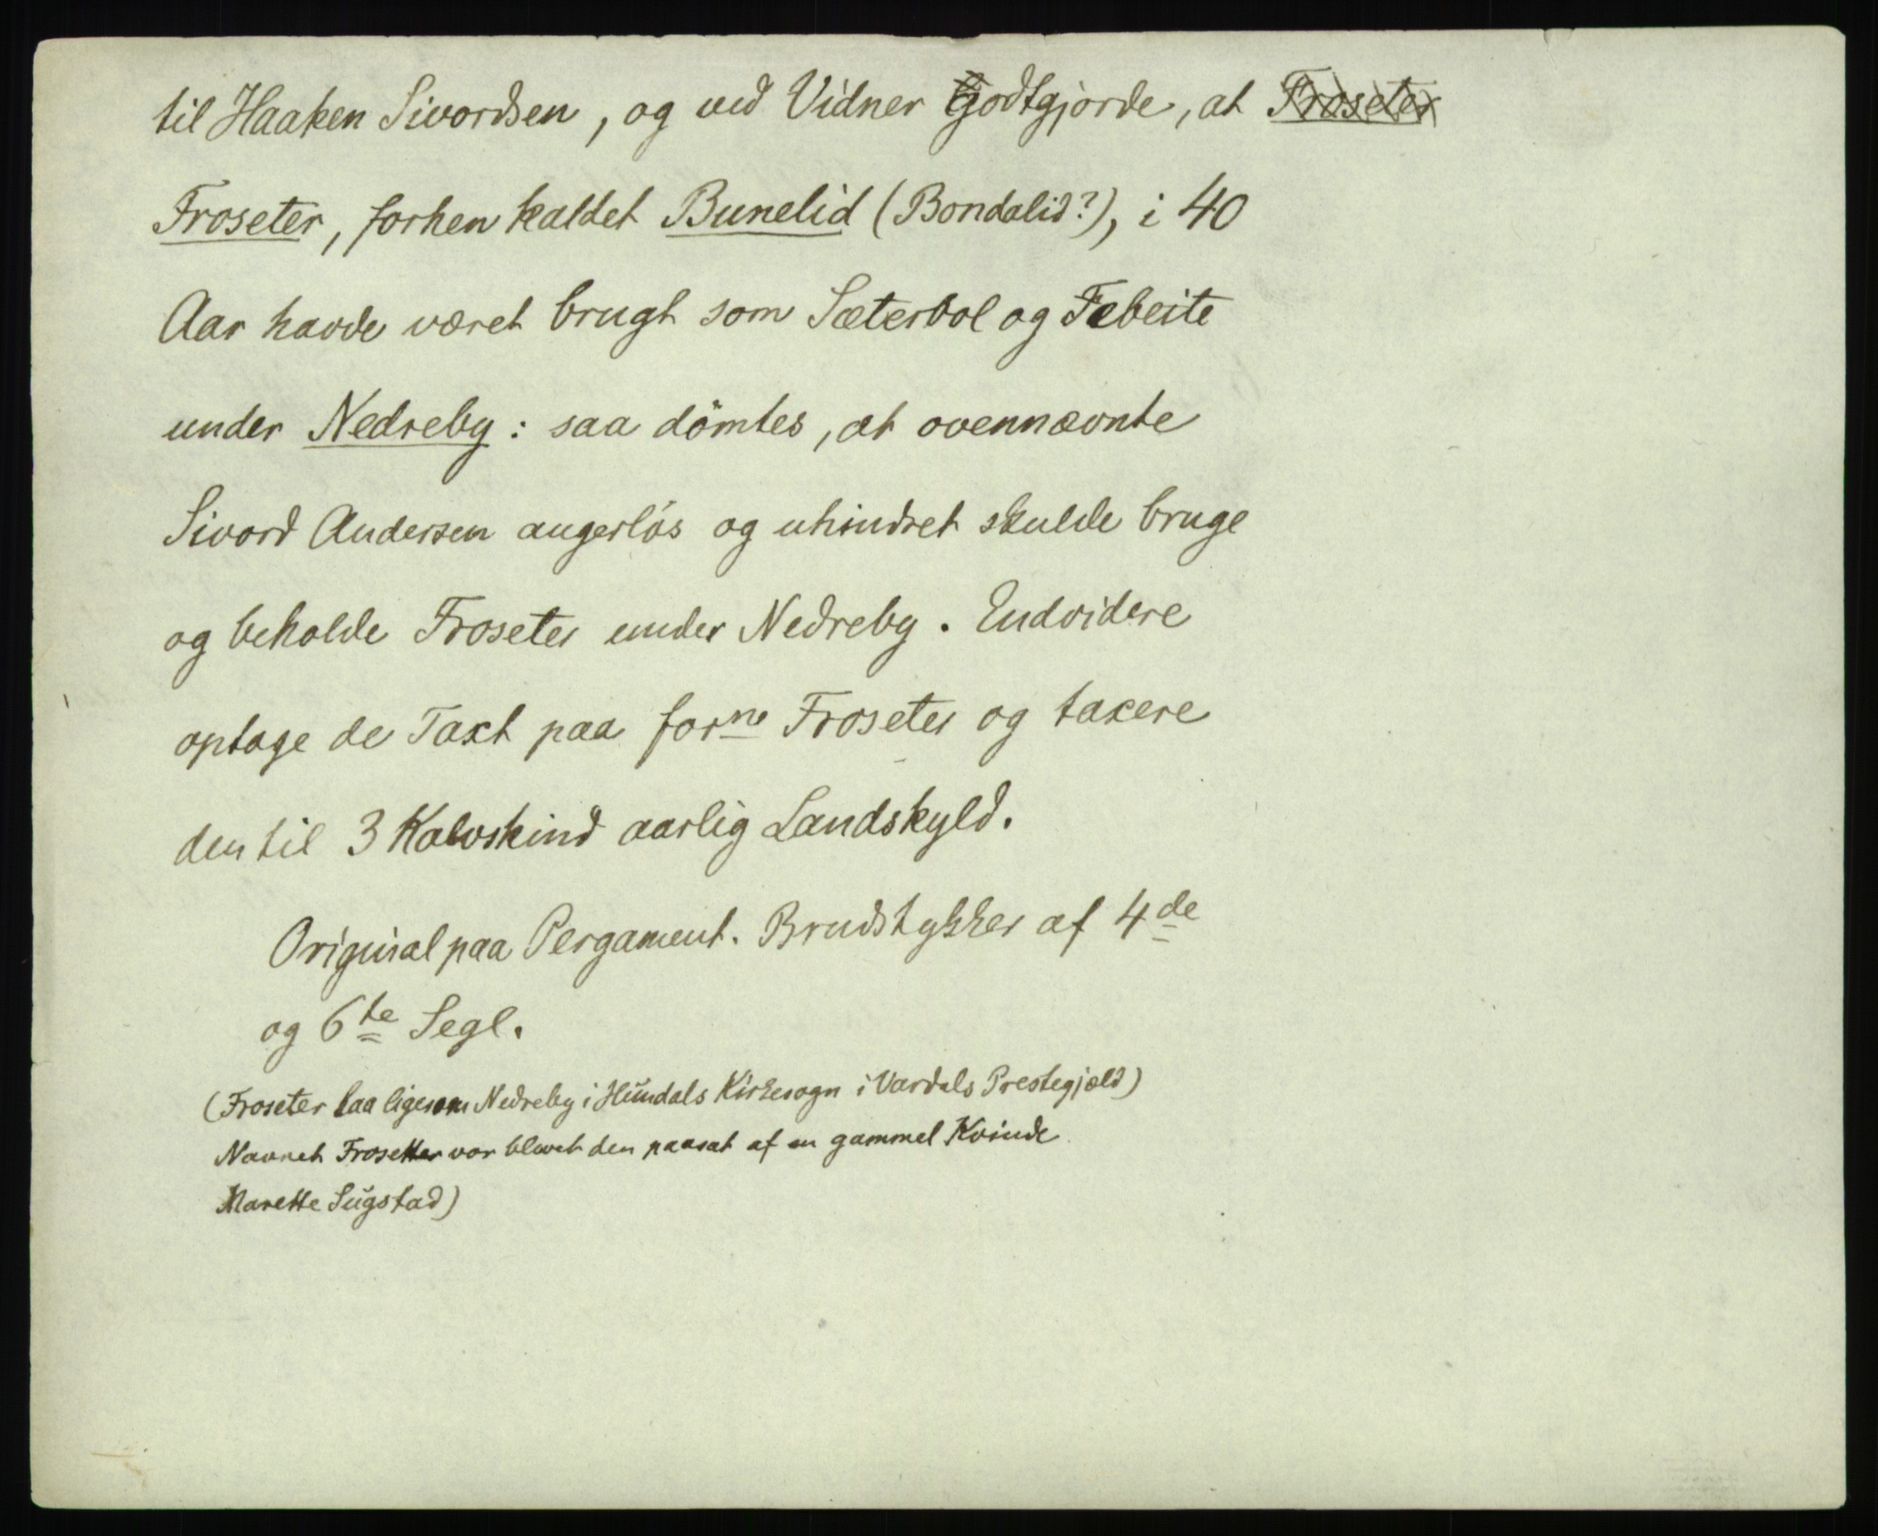 til Haaken Sivordsen, og ved Vidner Godtgjorde, at Froseter
Froseter, forhen kaldet Bunelid (Bondalid?), i 40
Aar havde været brugt som Sæterbol og Febeite
under Nedreby: saa dömtes, at ovennævnte
Sivord Andersen angerlös og uhindret skulde bruge
og beholde Froseter under Nedreby. Endvidere
optage de Taxt paa forne Froseter og taxere
den til 3 Kalvskind aarlig Landskyld.
Original paa Pergament. Brudstykker af 4de
og 6te Segl.
(Froseter laa ligesom Nedreby i Hundals Kirkesogn i Vardals Prestegjæld)
Navnet Frosetter var blevet den paasat af en gammel Kvinde
Marette Sugstad)